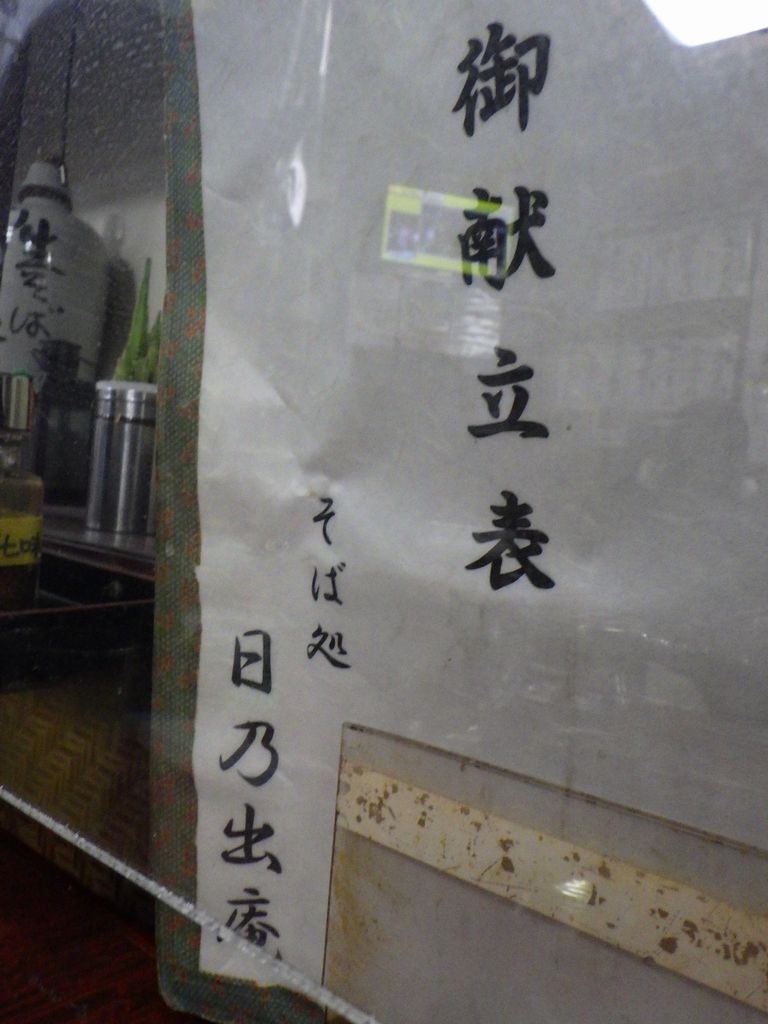 御献立表
そば処
日乃出庵
そば
七味